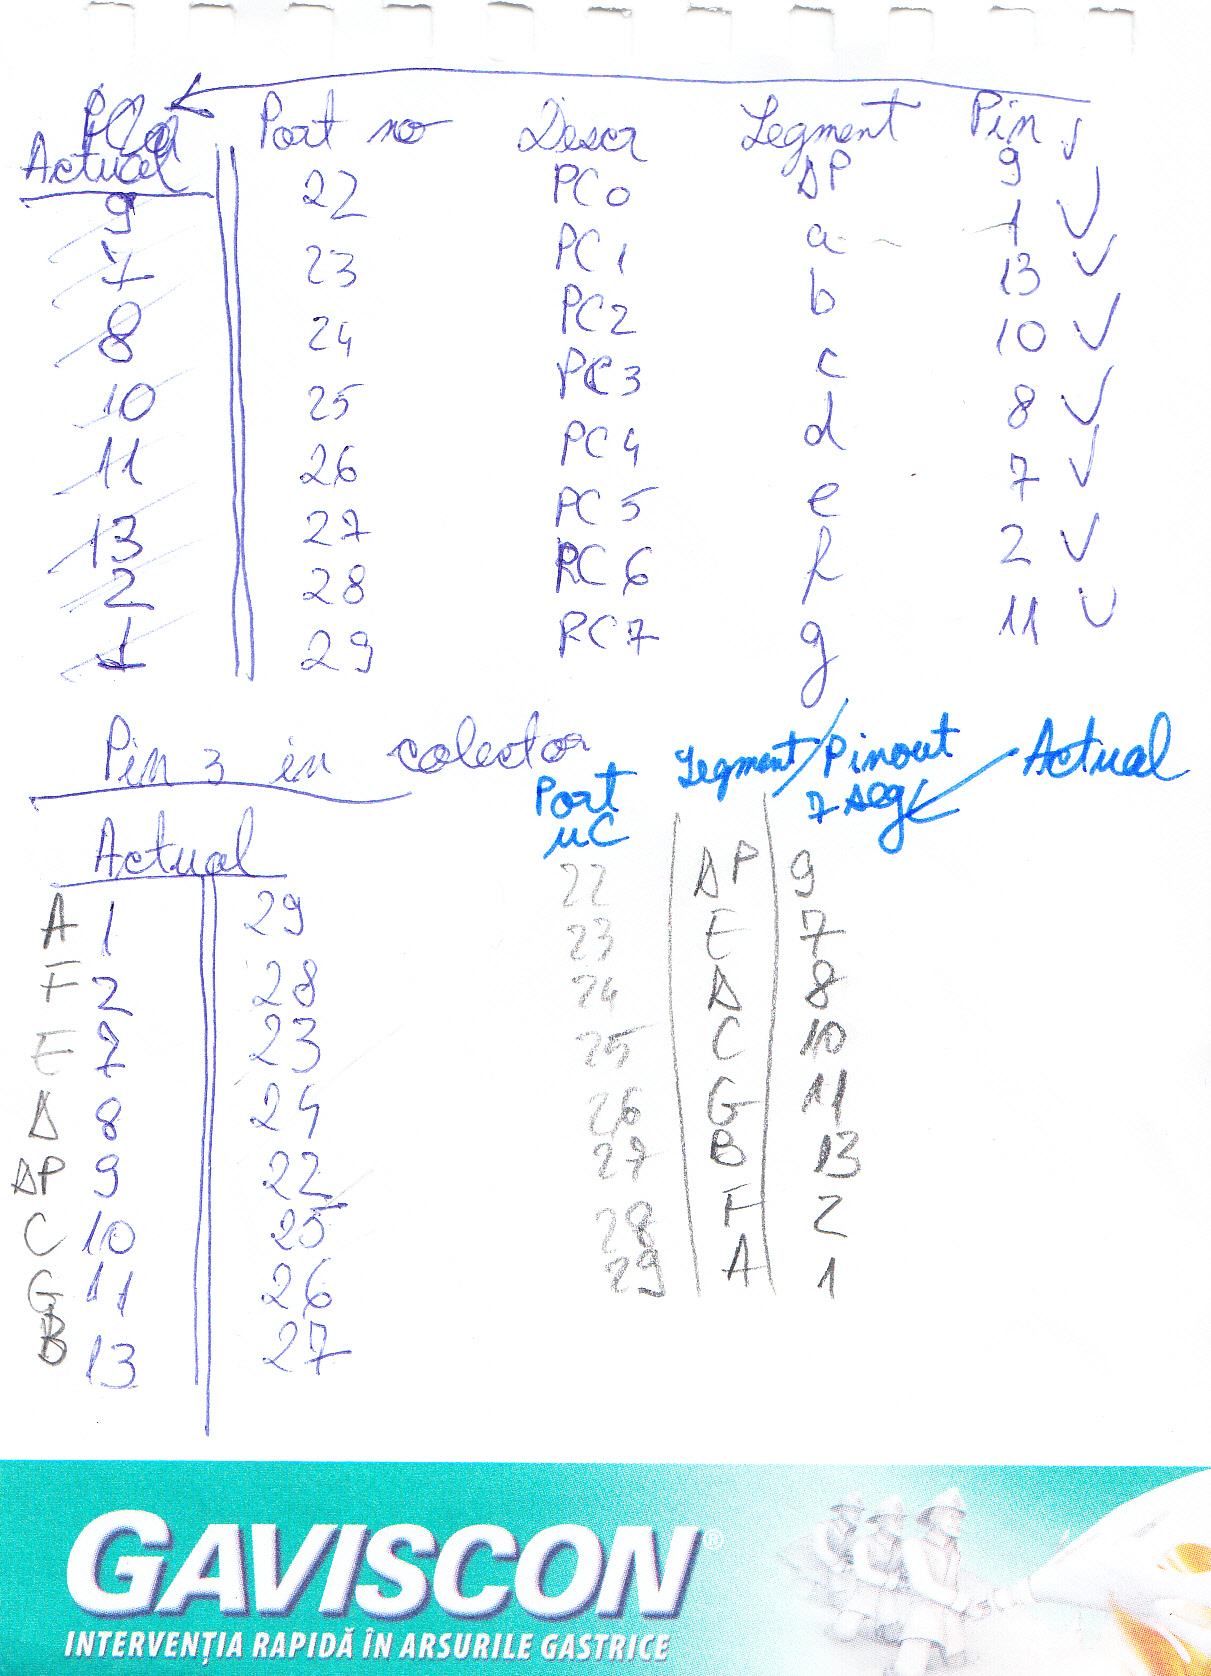 Port no Descr Segment Pin
Actual
9 22 PC0 DP 9
7 23 PC1 a 1 ✓
8 24 PC2 b 13 ✓
10 25 PC3 c 10 ✓
11 26 PC4 d 8 ✓
13 27 PC5 e 7 ✓
2 28 PC6 f 2 ✓
1 29 PC7 g 11 ✓
Pin 3 in colector
Actual
A 1 29
F 2 28
E 7 23
D 8 24
DP 9 22
C 10 25
G 11 26
B 13 27
Port uC Segment/Pinout 7 seg Actual
22 DP 9
23 E 7
24 D 8
25 C 10
26 G 11
27 B 13
28 F 2
29 A 1
GAVISCON®
INTERVENȚIA RAPIDĂ ÎN ARSURILE GASTRICE